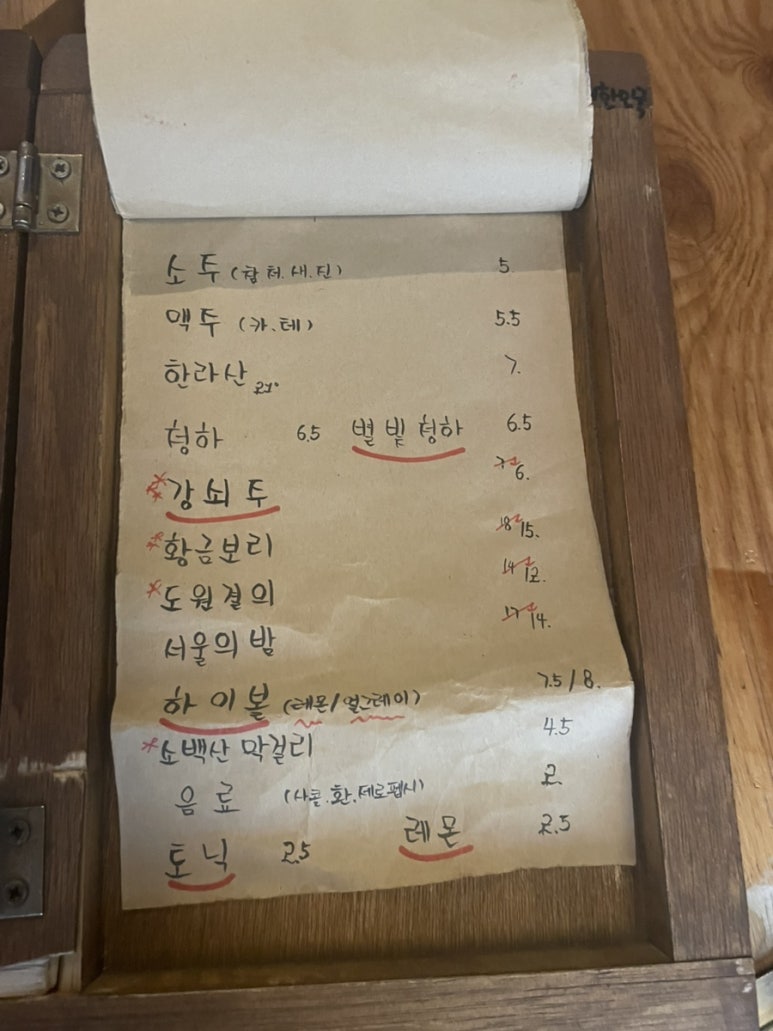 소주 (참.처.새.진) 5
맥주 (카.테) 5.5
한라산 21° 7.
청하 6.5 별빛청하 6.5
강쇠주 7 6.
황금보리 18 15.
도원결의 14 12.
서울의 밤 17 14.
하이볼 (레몬/얼그레이) 7.5/8.
소백산 막걸리 4.5
음료 (사콜.환.제로펩시) 2.
토닉 2.5 레몬 2.5